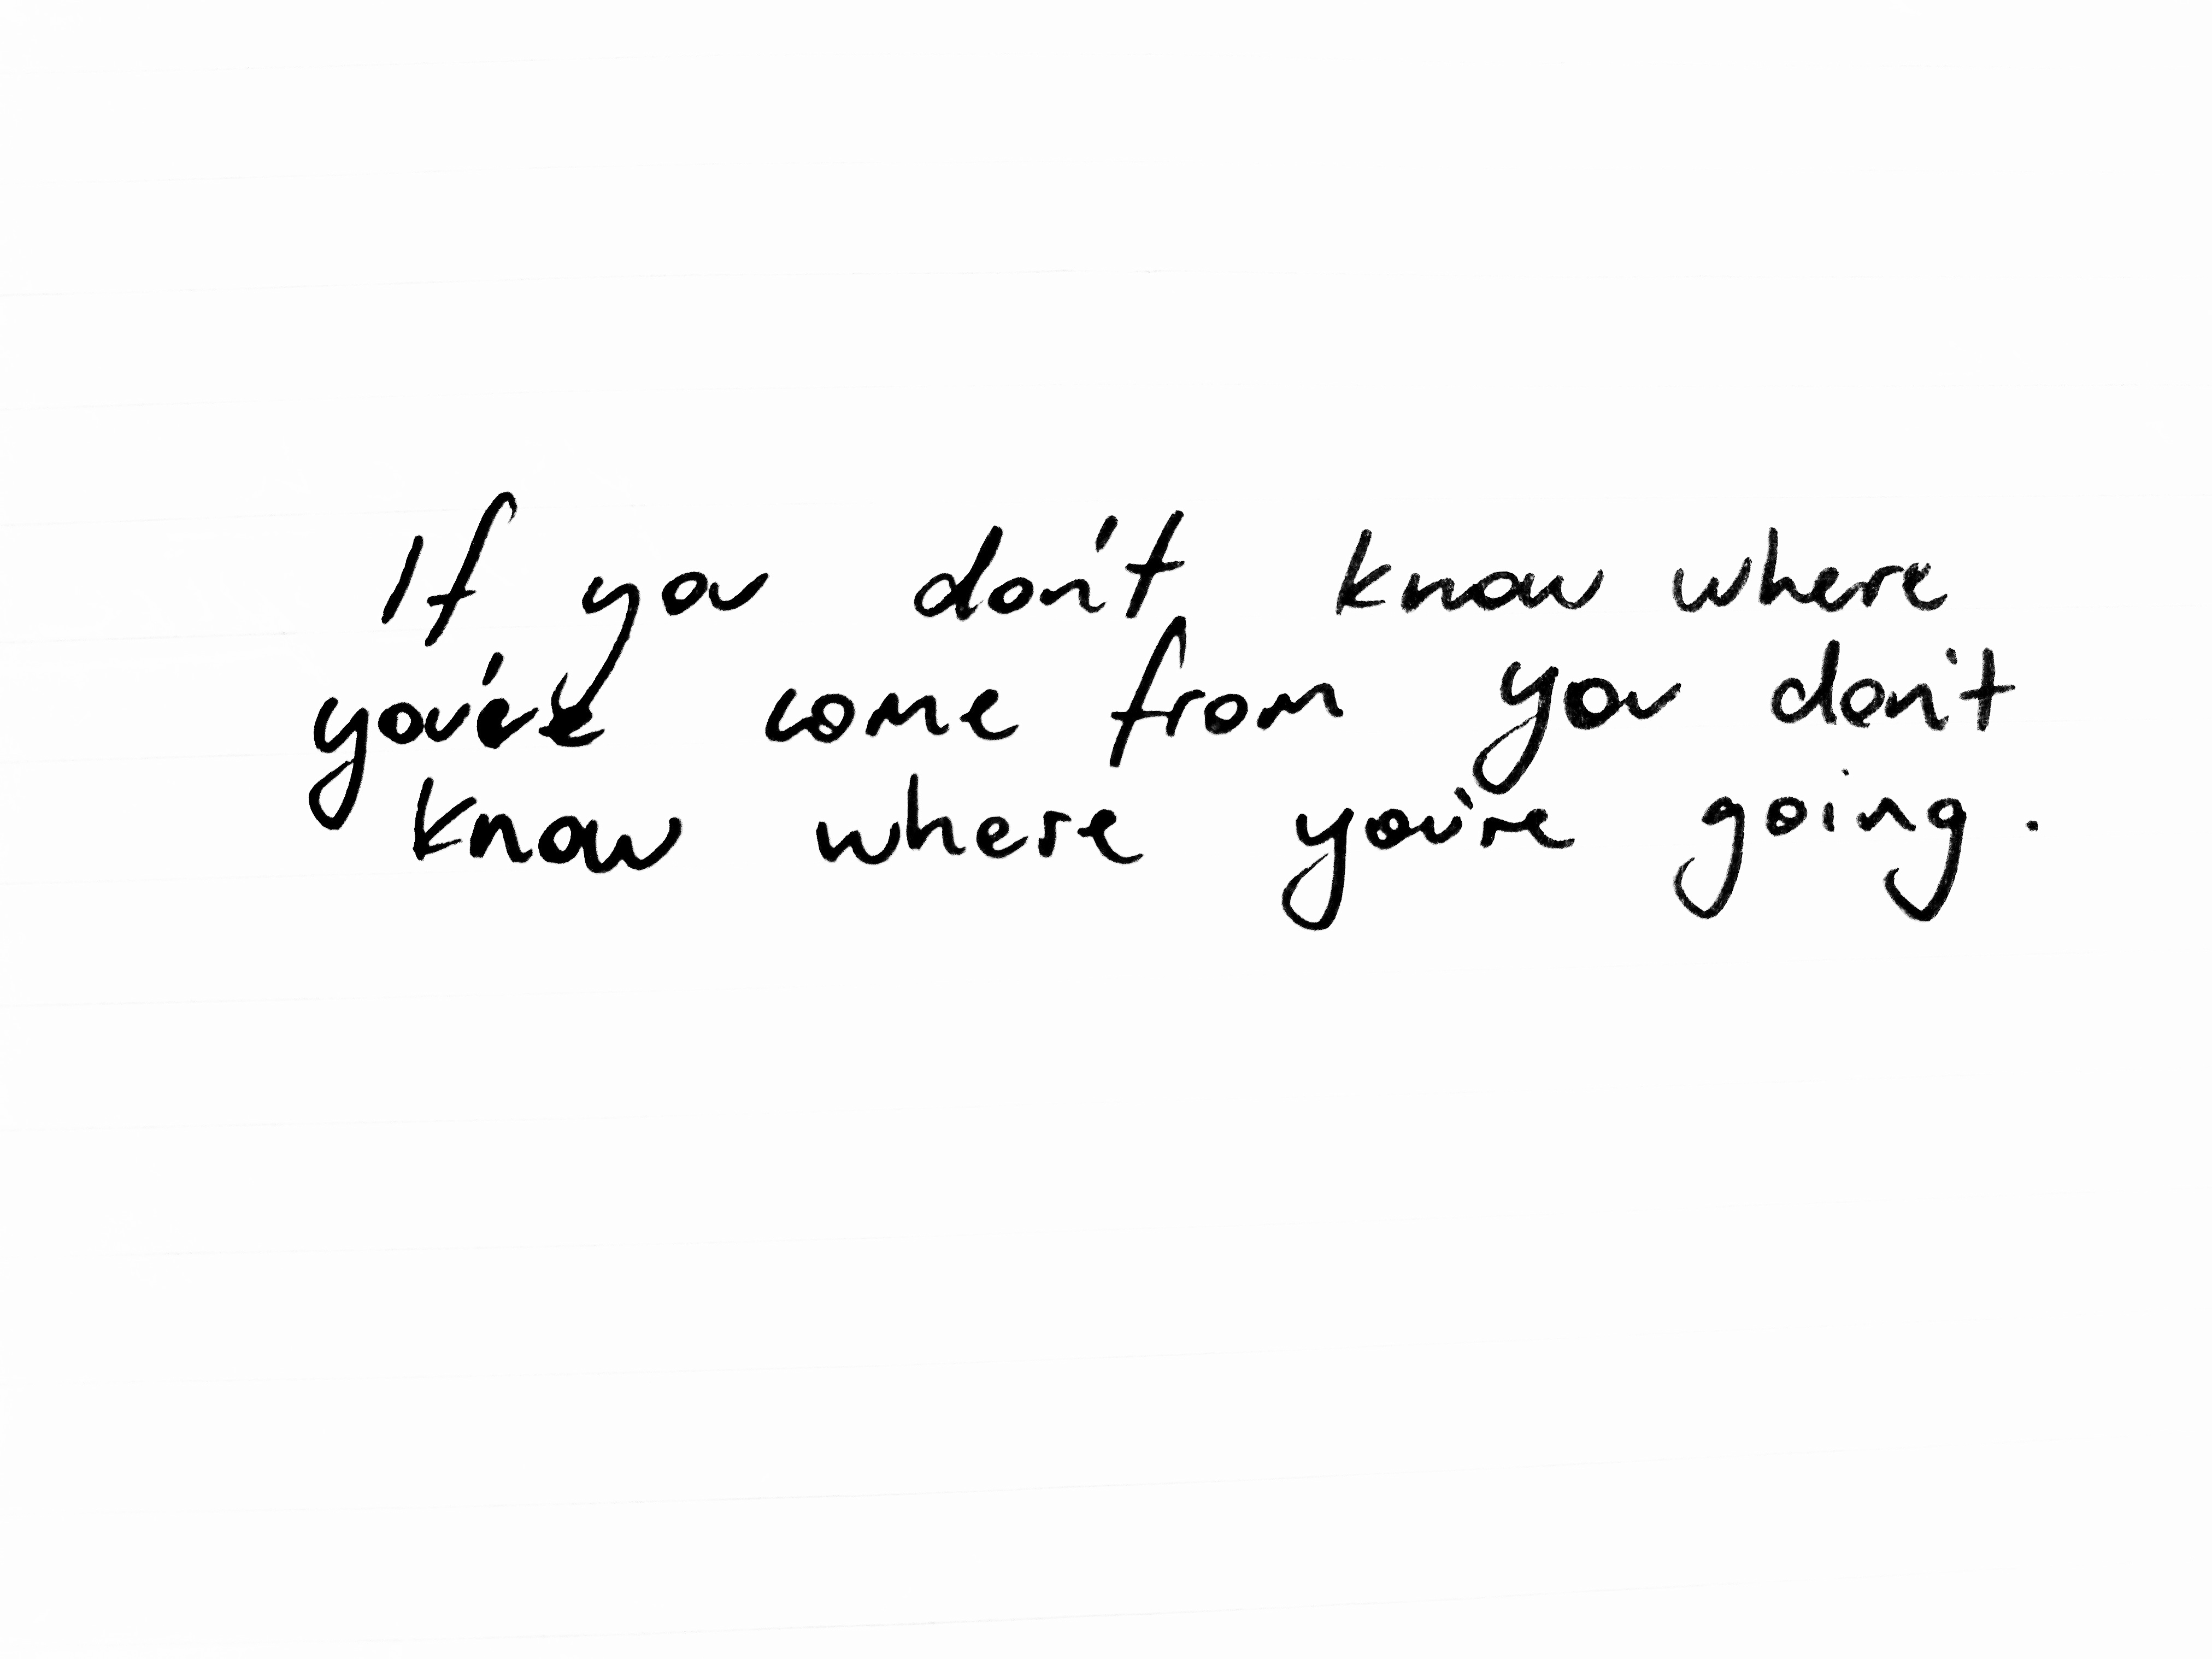 If you don't know where
you've come from you don't
know where you're going.